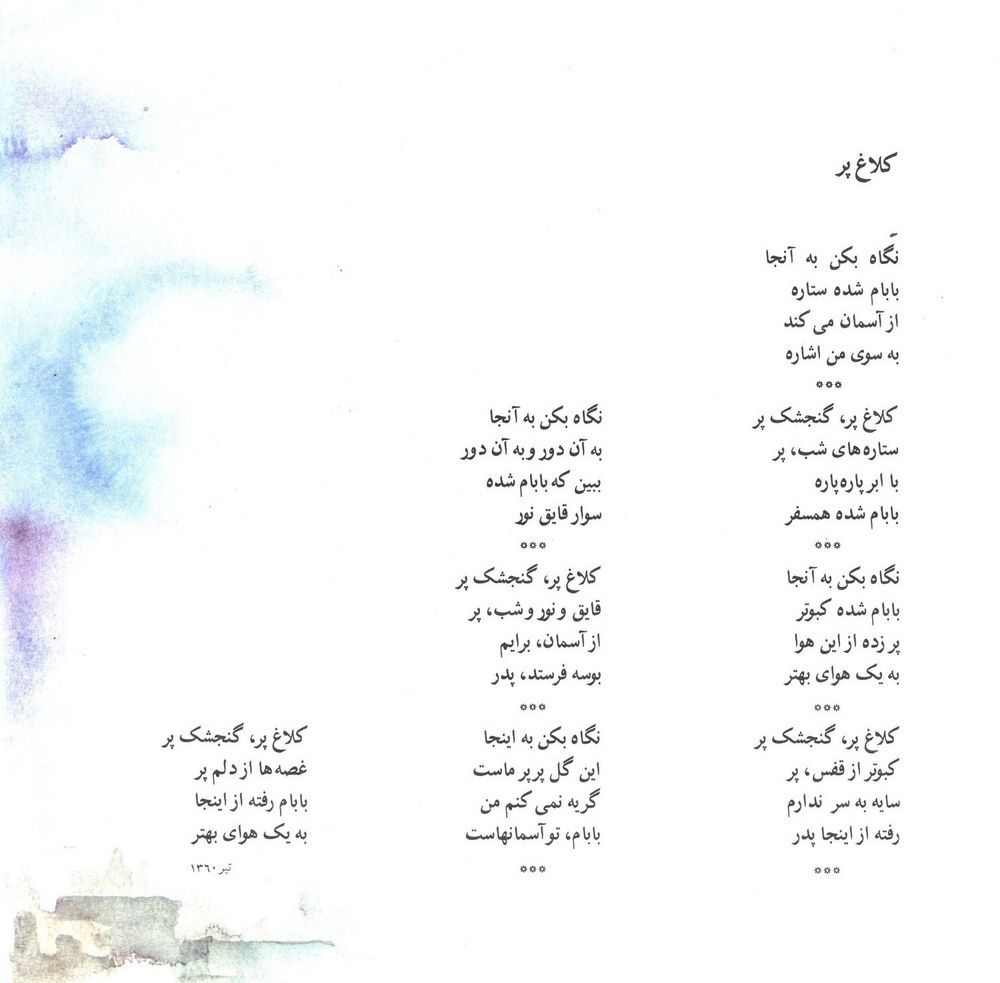 کلاغ پر
نگاه بکن به آنجا
بابام شده ستاره
از آسمان می کند
به سوی من اشاره
***
کلاغ پر، گنجشک پر
ستاره‌های شب، پر
با ابر پاره‌پاره
بابام شده همسفر
***
نگاه بکن به آنجا
بابام شده کبوتر
پر زده از این هوا
به یک هوای بهتر
***
کلاغ پر، گنجشک پر
کبوتر از قفس، پر
سایه به سر ندارم
رفته از اینجا پدر
***
نگاه بکن به آنجا
به آن دور و به آن دور
ببین که بابام شده
سوار قایق نور
***
کلاغ پر، گنجشک پر
قایق و نور و شب، پر
از آسمان، برایم
بوسه فرستد، پدر
***
نگاه بکن به اینجا
این گل پرپر ماست
گریه نمی کنم من
بابام، تو آسمانهاست
***
کلاغ پر، گنجشک پر
غصه‌ها از دلم پر
بابام رفته از اینجا
به یک هوای بهتر
تیر ۱۳۶۰